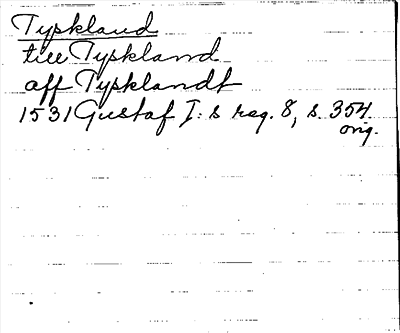 Tyskland
till Tyskland
aff Tysklandt
1531 Gustaf I: s reg. 8, s. 354.
orig.